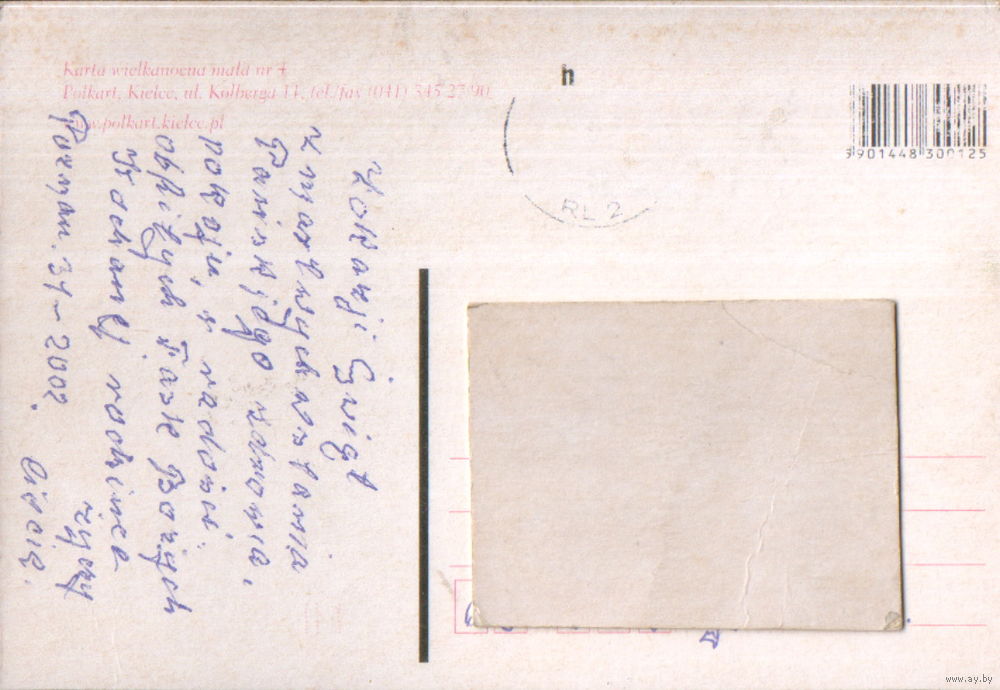 Karta wielkanocna mała nr 4
Polkart, Kielce, ul. Kolberga 11, tel./fax (041) 345 27 90
www.polkart.kielce.pl
h
5901448300125
RL 2
Z okazji Świąt
zmartwychwstania
Pańskiego zdrowia,
pokoju, i radości.
obfitych Łask Bożych
Kochanej rodzince
Poznań. 31-2002.
życzy
www.ay.by